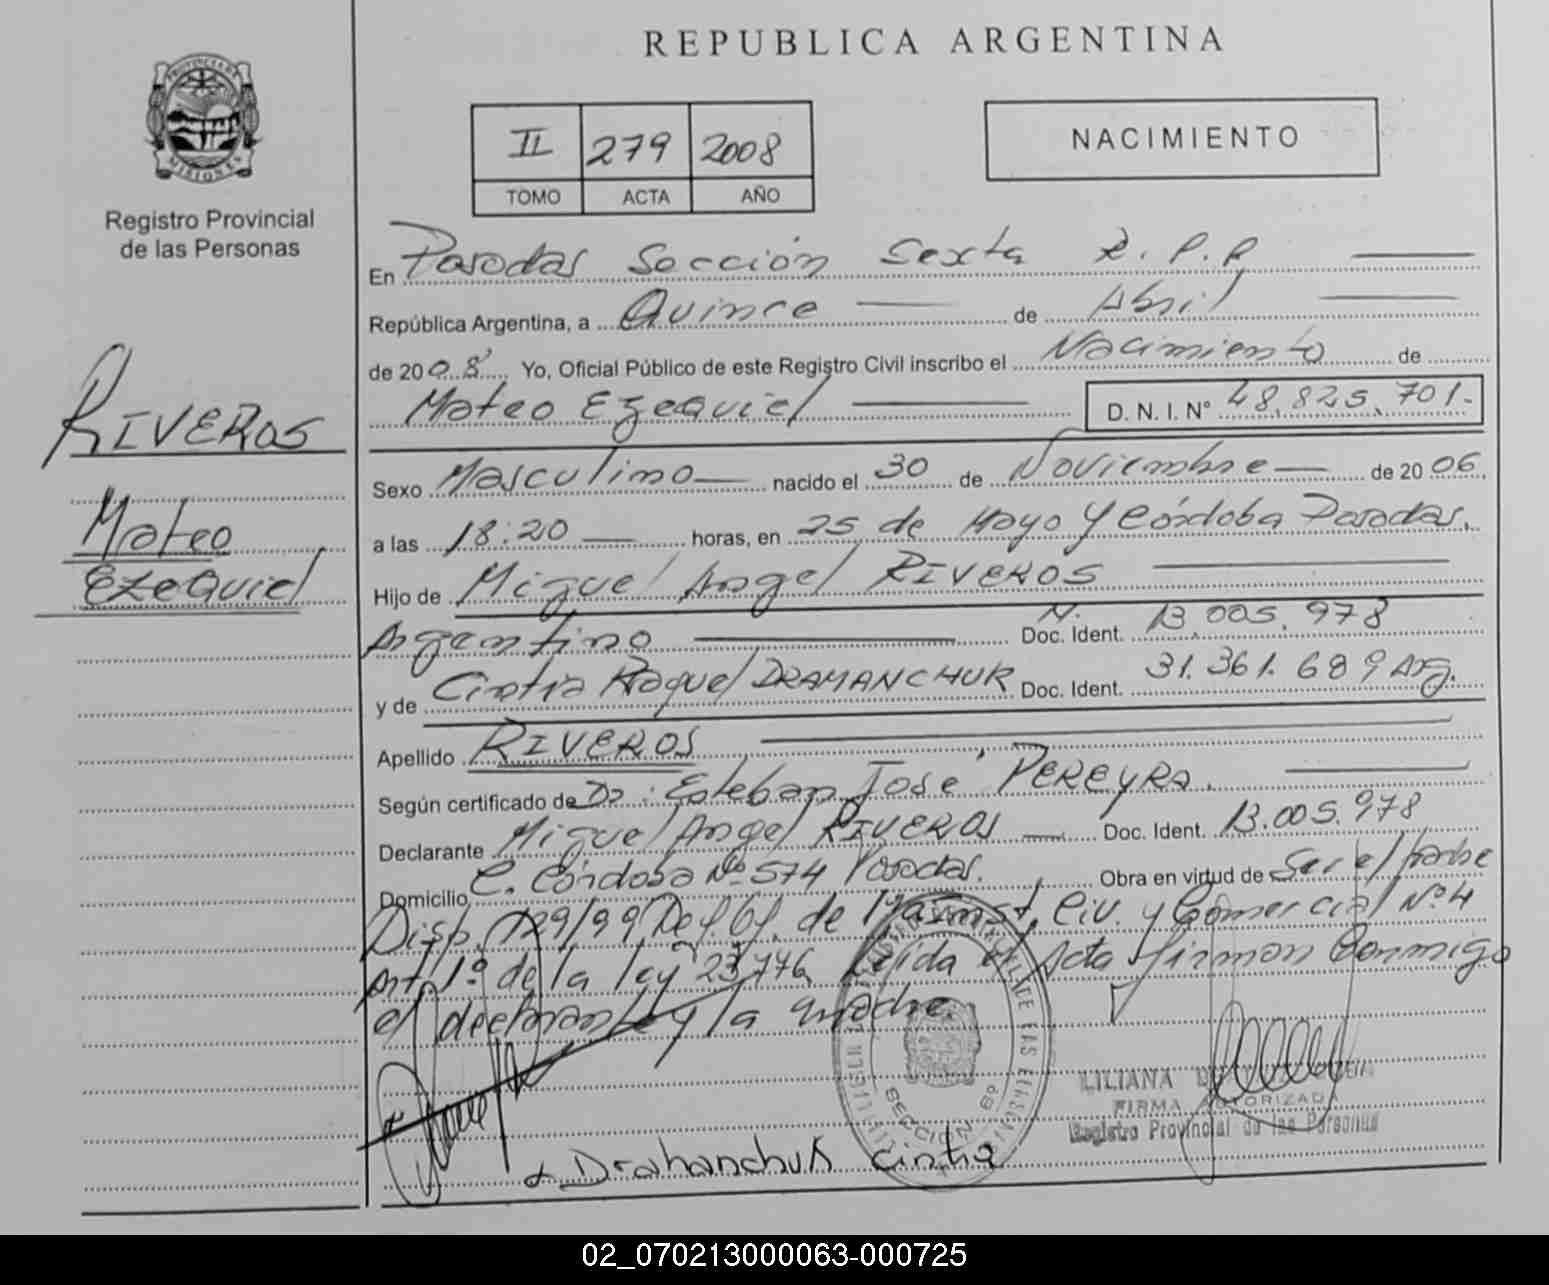 REPUBLICA ARGENTINA
PROVINCIA DE
MISIONES
Registro Provincial
de las Personas
II 279 2008
TOMO ACTA AÑO
NACIMIENTO
En Posadas Sección Sexta R. P. P.
República Argentina, a Quince de Abril
de 2008 Yo, Oficial Público de este Registro Civil inscribo el Nacimiento de
Mateo Ezequiel D. N. I. Nº 48.825.701.-
RIVEROS
Mateo
Ezequiel
Sexo Masculino nacido el 30 de Noviembre de 2006
a las 18:20 horas, en 25 de Mayo y Córdoba Posadas.
Hijo de Miguel Angel RIVEROS
Argentino Doc. Ident. M. 13.005.978
y de Cintia Raquel DRAMANCHUK Doc. Ident. 31.361.689 Arg.
Apellido RIVEROS
Según certificado de Dr. Esteban José PEREYRA.
Declarante Miguel Angel RIVEROS Doc. Ident. 13.005.978
Domicilio C. Córdoba Nº 574 Posadas. Obra en virtud de Ser el padre
Disp. 129/99 de 1ª Inst. Civ. y Comercial Nº 4
Art. 1º de la ley 23.776 Leída el Acta firman Conmigo
el declarante y la madre.
SECCION 6º
LILIANA
FIRMA AUTORIZADA
Registro Provincial de las Personas
Drahanchuk Cintia
02_070213000063-000725